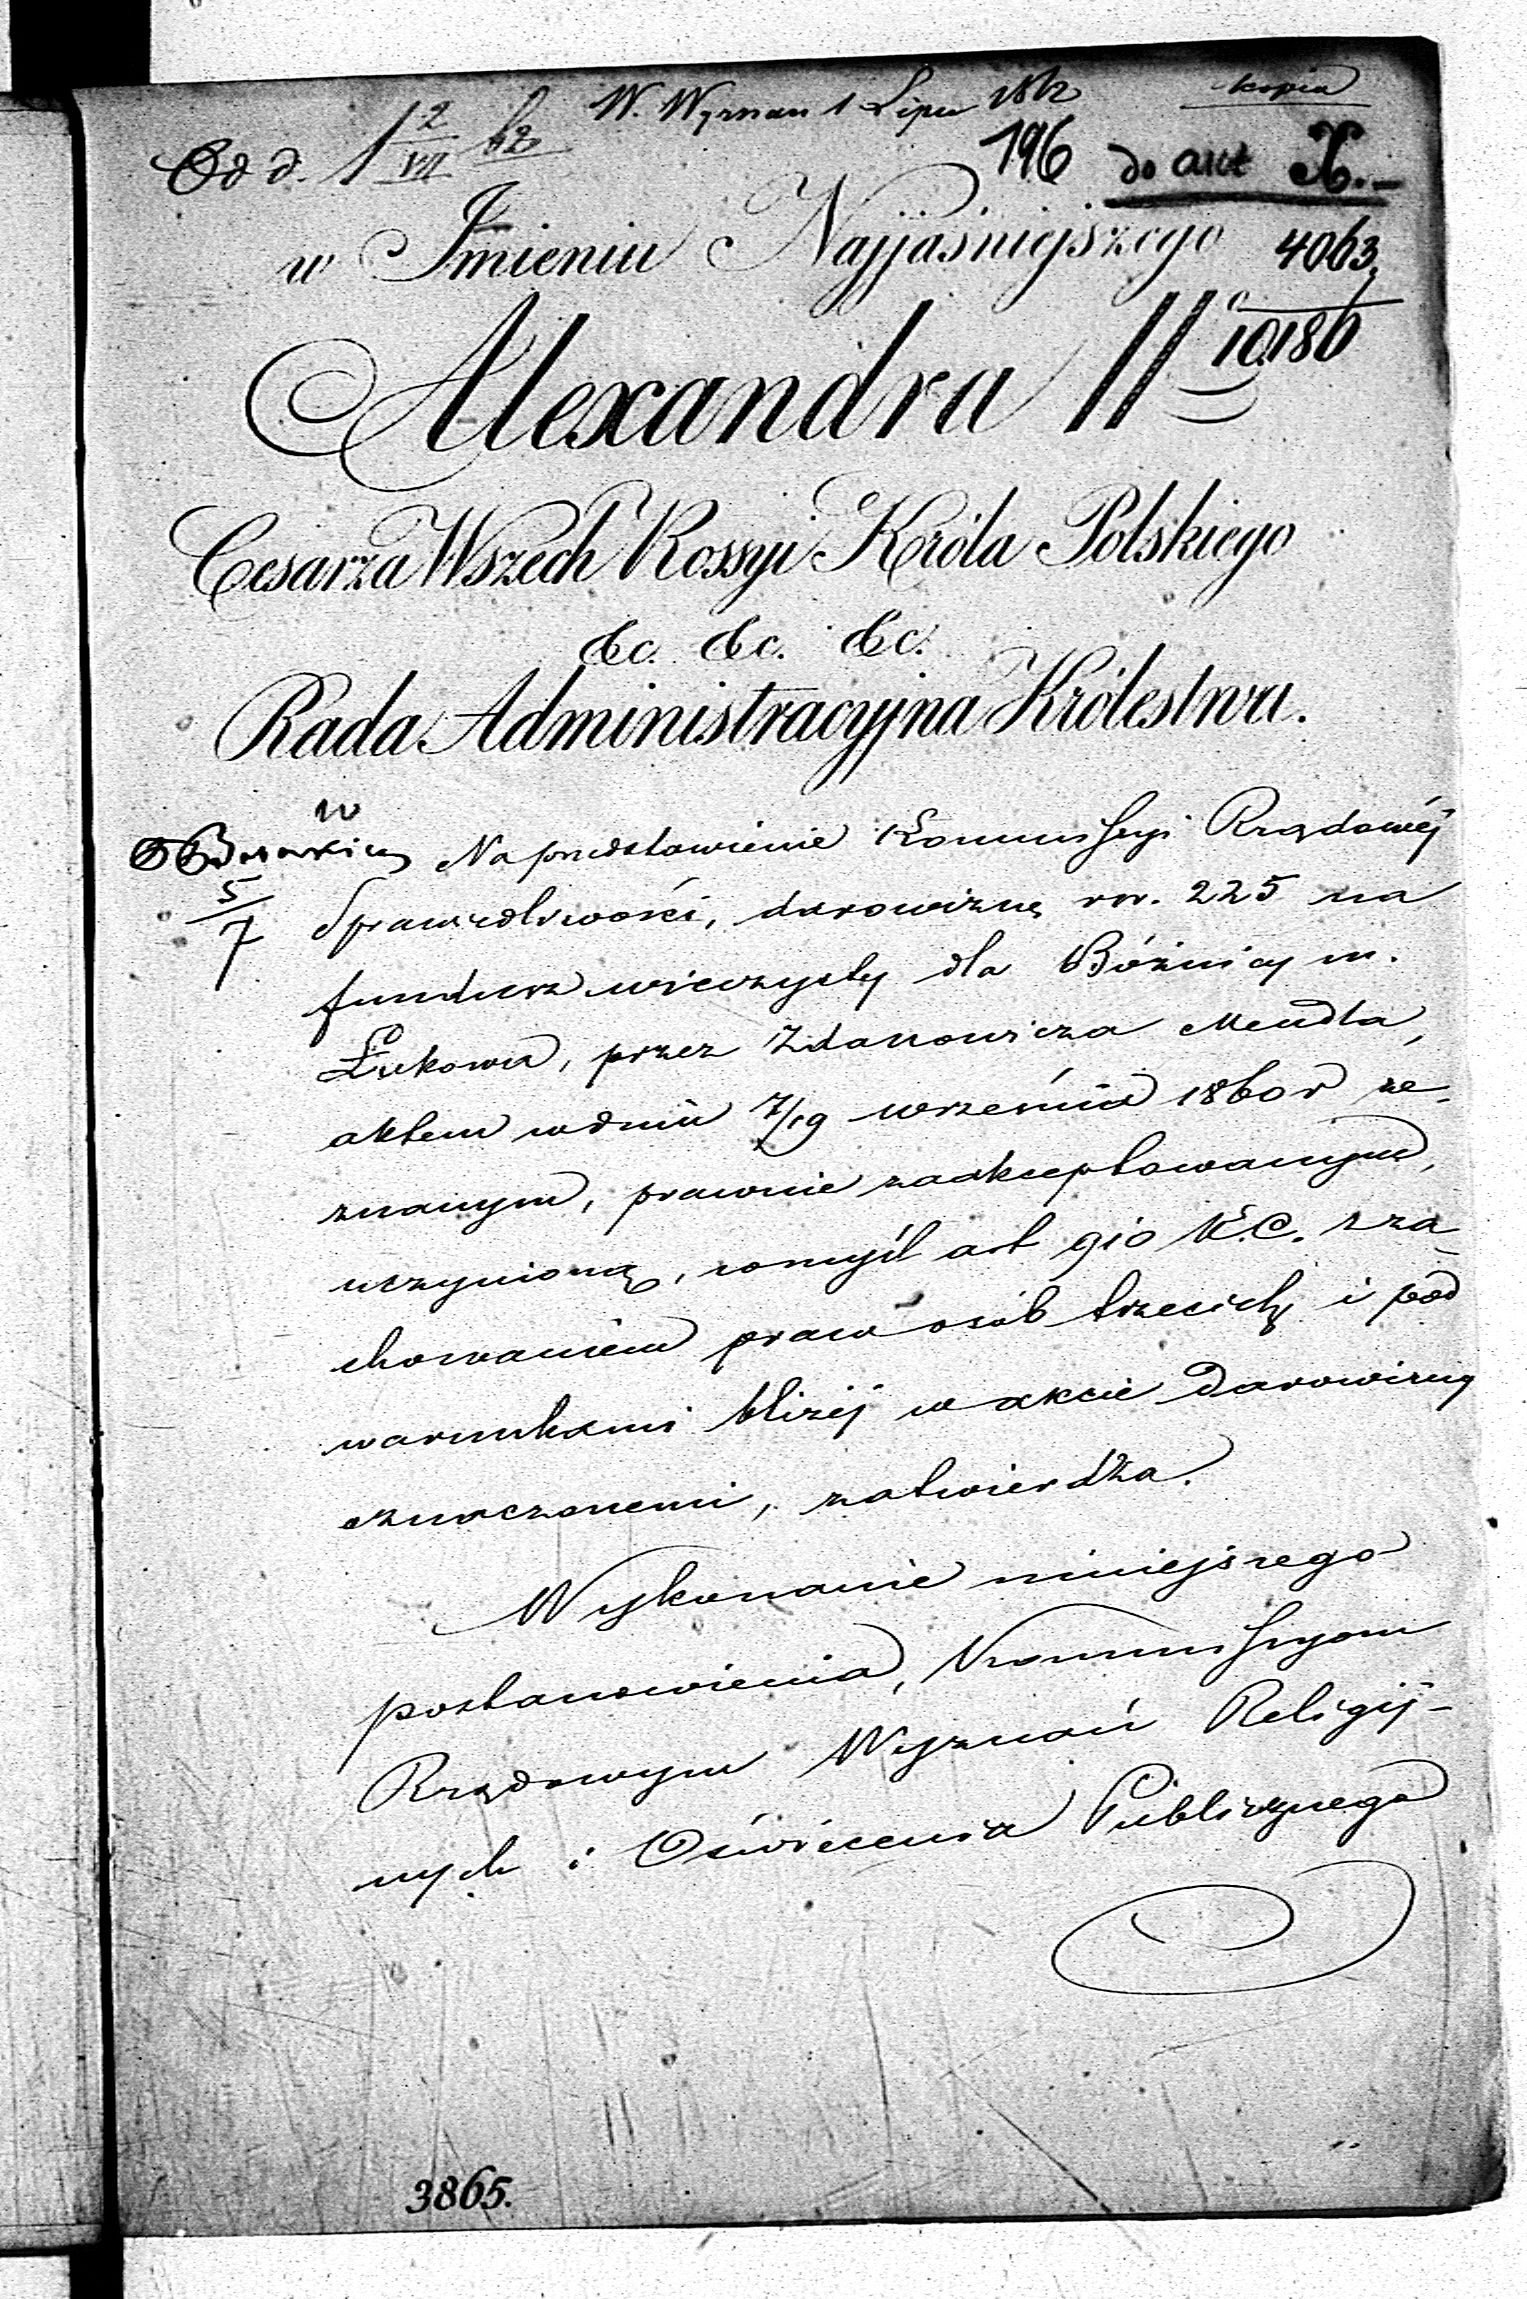 kopia
W. Wyznań 1 Lipca 1862
Od d. 1 2/VII 62
196 do akt X.-
w Imieniu Najjaśniejszego
4063.
10186
Alexandra IIº
Cesarza Wszech Rossyi Króla Polskiego
&c. &c. &c.
Rada Administracyjna Królestwa.
w
5/7
Na przedstawienie Kommissyi Rządowéj
Sprawiedliwości, darowiznę rsr. 225 na
fundusz wieczysty dla Bóżnicy m.
Łukowa, przez Zdanowicza Mendla,
aktem w dniu 7/19 września 1860 r ze-
znanym, prawnie zaakceptowanym,
uczynioną, w myśl art 910 K.C. z za-
chowaniem praw osób trzecich i pod
warunkami bliżéj w akcie darowizny
oznaczonemi, zatwierdza.
Wykonanie niniejszego
postanowienia, Kommissyom
Rządowym Wyznań Religij-
nych i Oświecenia Publicznego
3865.